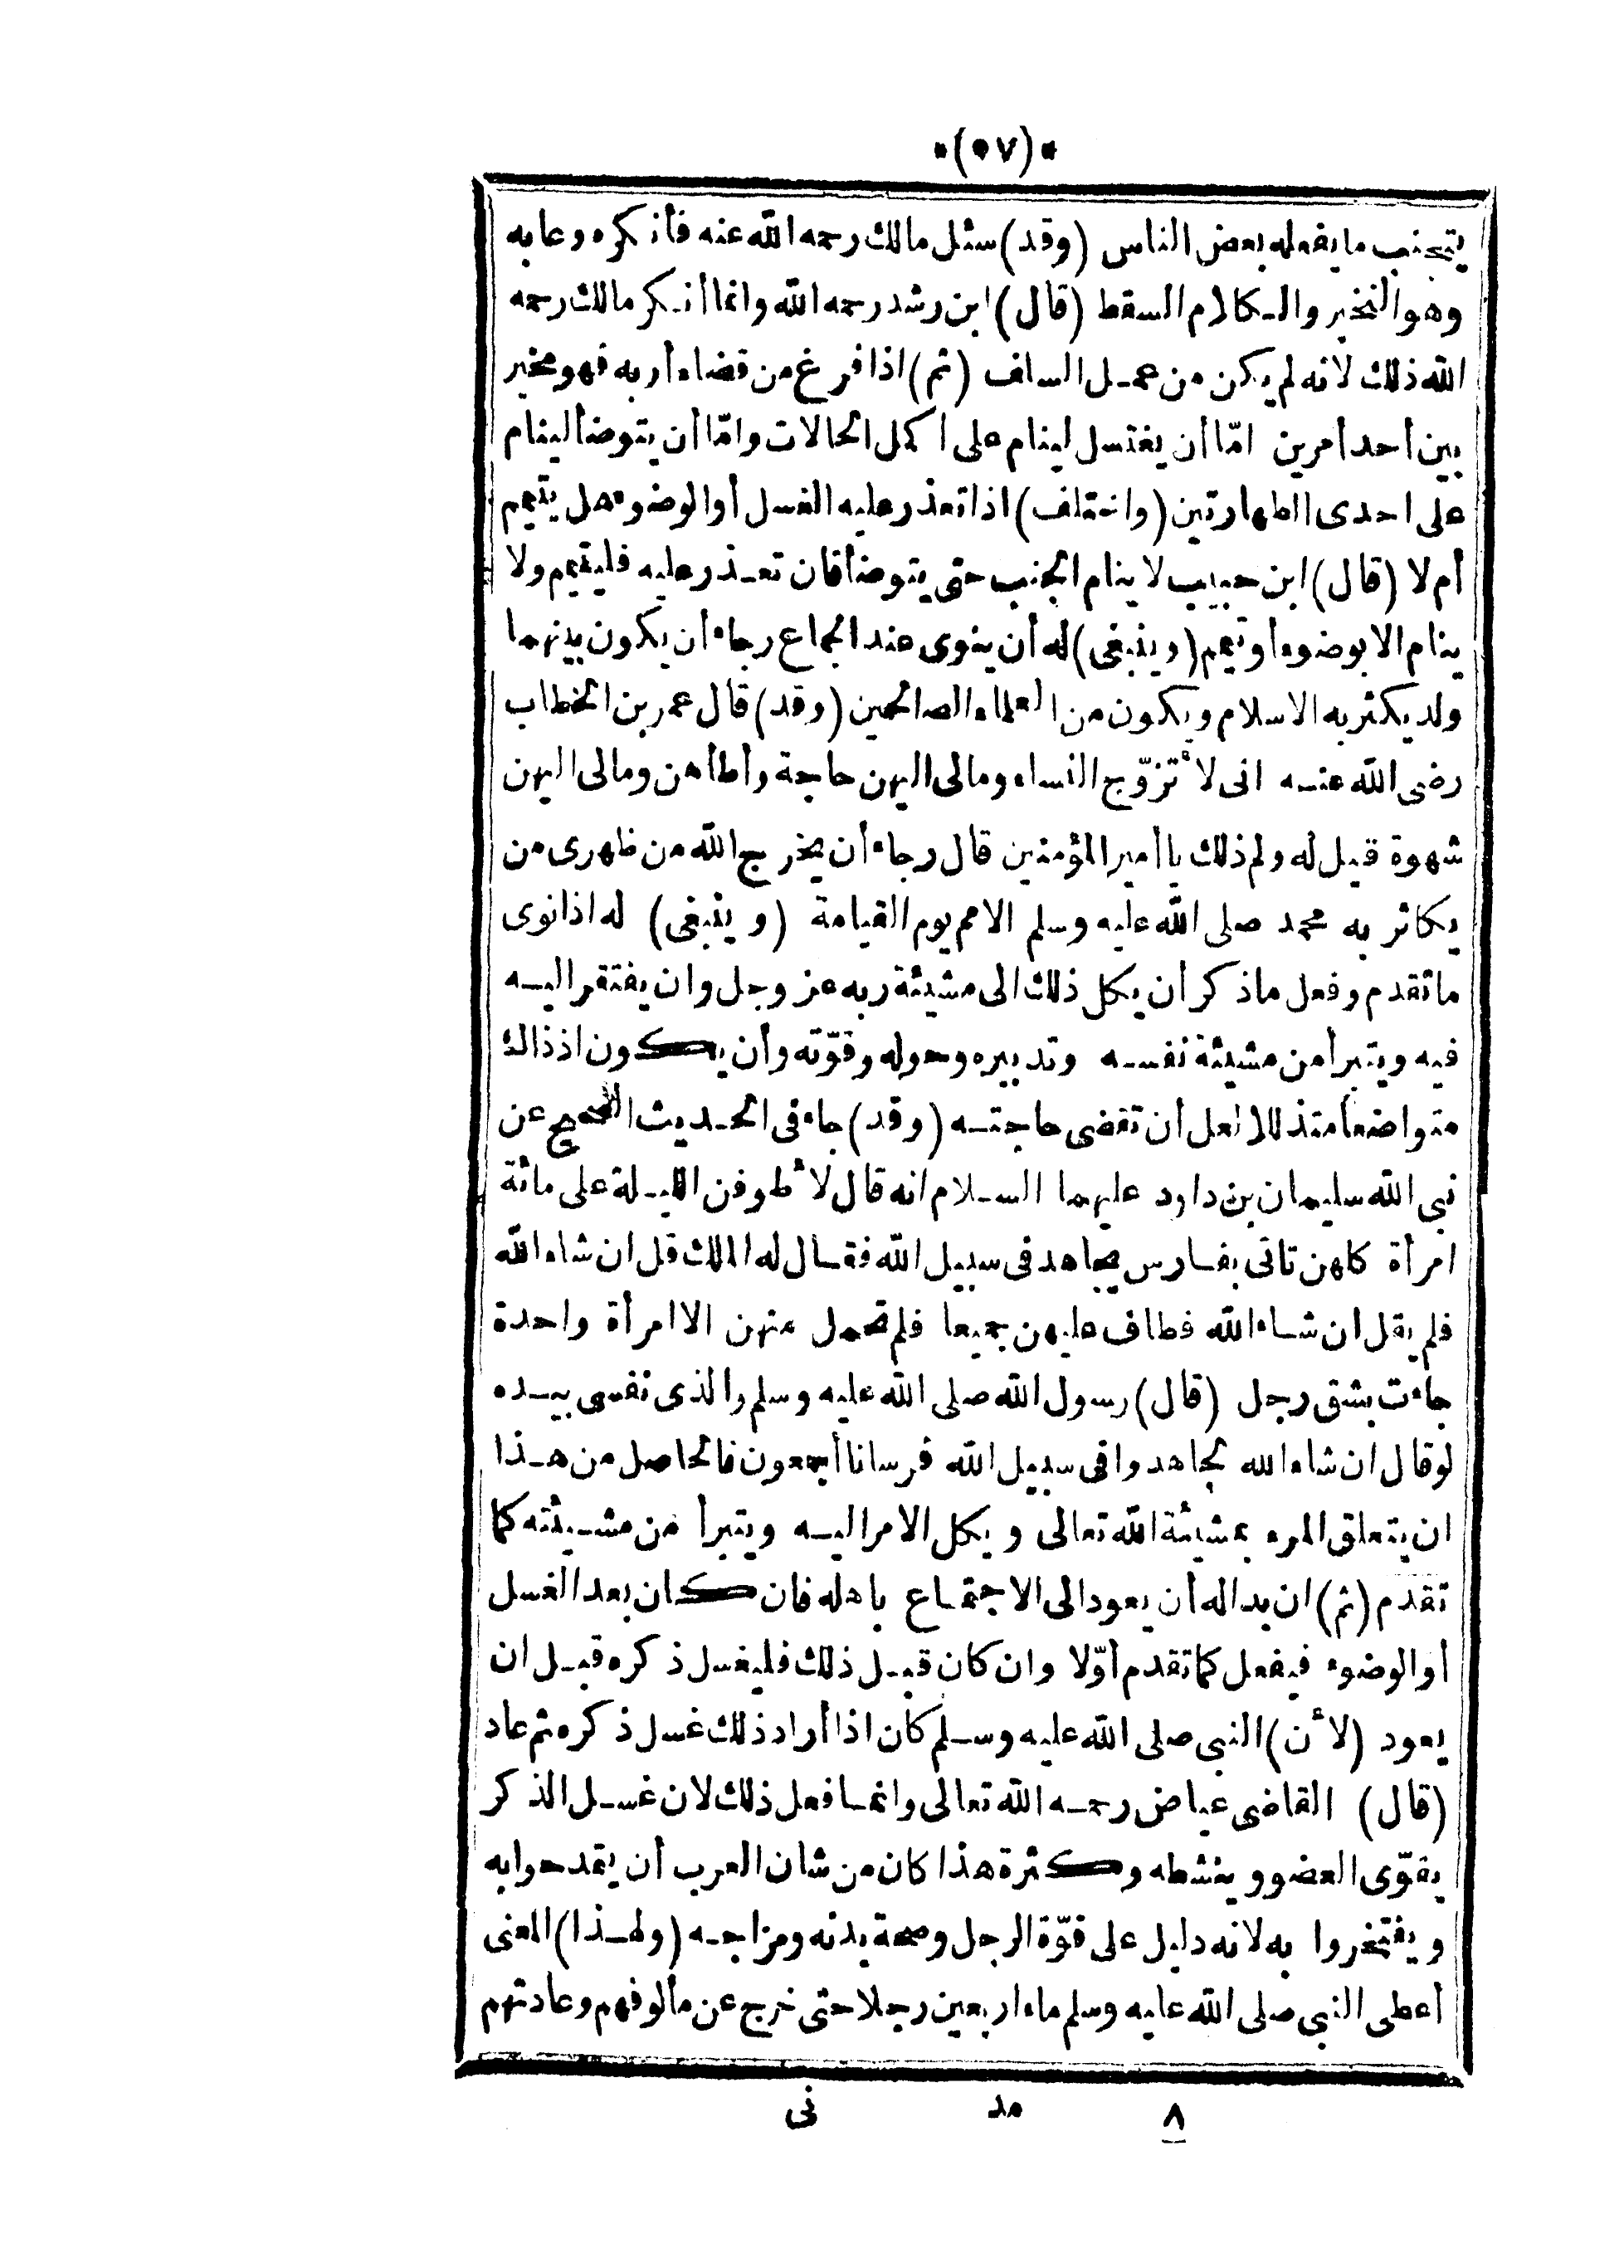 *(٥٧)*
يتجنب ما يفعله بعض الناس (وقد) سئل مالك رحمه الله عنه فأنكره وعابه
وهو النخير والكلام السقط (قال) ابن رشد رحمه الله وانما أنكر مالك رحمه
الله ذلك لانه لم يكن من عمل السلف (ثم) اذا فرغ من قضاء أربه فهو مخير
بين أحد أمرين امّا أن يغتسل لينام على أكمل الحالات وامّا أن يتوضأ لينام
على احدى الطهارتين (واختلف) اذا تعذر عليه الغسل أو الوضوء هل يتيمم
أم لا (قال) ابن حبيب لا ينام الجنب حتى يتوضأ فان تعذر عليه فليتيمم ولا
ينام الا بوضوء أو تيمم (وينبغى) له أن ينوى عند الجماع رجاء أن يكون بينهما
ولد يكثر به الاسلام ويكون من العلماء الصالحين (وقد) قال عمر بن الخطاب
رضى الله عنه انى لأتزوّج النساء ومالى اليهن حاجة وأطأهن ومالى اليهن
شهوة قيل له ولم ذلك يا أمير المؤمنين قال رجاء أن يخرج الله من ظهرى من
يكاثر به محمد صلى الله عليه وسلم الامم يوم القيامة (وينبغى) له اذا نوى
ما تقدم وفعل ما ذكر أن يكل ذلك الى مشيئة ربه عز وجل وان يفتقر اليه
فيه ويتبرأ من مشيئة نفسه وتدبيره وحوله وقوّته وأن يكون اذ ذاك
متواضعا متذللا لعل أن تقضى حاجته (وقد) جاء فى الحديث الصحيح عن
نبى الله سليمان بن داود عليهما السلام انه قال لأطوفن الليلة على مائة
امرأة كلهن تاتى بفارس يجاهد فى سبيل الله فقال له الملك قل ان شاء الله
فلم يقل ان شاء الله فطاف عليهن جميعا فلم تحمل منهن الا امرأة واحدة
جاءت بشق رجل (قال) رسول الله صلى الله عليه وسلم والذى نفسى بيده
لو قال ان شاء الله لجاهدوا فى سبيل الله فرسانا أجمعون فالحاصل من هذا
ان يتعلق المرء بمشيئة الله تعالى ويكل الامر اليه ويتبرأ من مشيئته كما
تقدم (ثم) ان بدا له أن يعود الى الاجتماع باهله فان كان بعد الغسل
أو الوضوء فيفعل كما تقدم أوّلا وان كان قبل ذلك فليغسل ذكره قبل ان
يعود (لأن) النبى صلى الله عليه وسلم كان اذا أراد ذلك غسل ذكره ثم عاد
(قال) القاضى عياض رحمه الله تعالى وانما فعل ذلك لان غسل الذكر
يقوّى العضو وينشطه وكثرة هذا كان من شان العرب أن يتمدحوا به
ويفتخروا به لانه دليل على قوّة الرجل وصحة بدنه ومزاجه (ولهذا) المعنى
أعطى النبى صلى الله عليه وسلم ماء اربعين رجلا حتى خرج عن مألوفهم وعادتهم
٨ مد نى